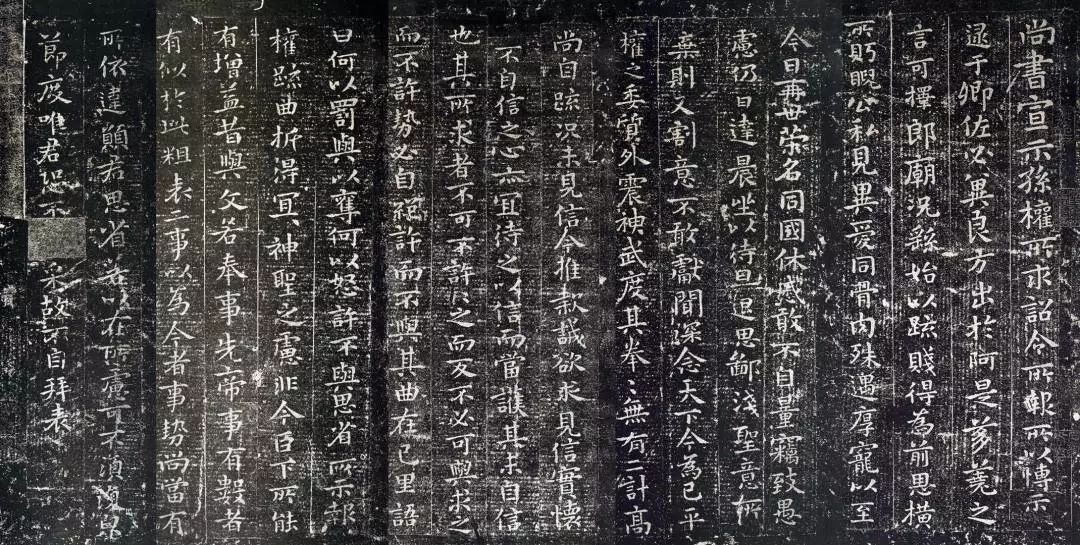 尚書宣示孫權所求詔令所報所以博示
逮于卿佐必冀良方出於阿是芻蕘之
言可擇郎廟況繇始以疏賤得為前恩橫
所眄睨公私見異愛同骨肉殊遇厚寵以至
今日再世榮名同國休慼敢不自量竊致愚
慮仍日達晨坐以待旦退思鄙淺聖意所
棄則又割意不敢獻聞深念天下今為已平
權之委質外震神武度其拳〻無有二計高
尚自疏況未見信今推款誠欲求見信實懷
不自信之心亦宜待之以信而當護其未自信
也其所求者不可不許〻之而反不必可與求之
而不許勢必自絕許而不與其曲在己里語
曰何以罰與以奪何以怒許不與思省所示報
權疏曲折得宜〻神聖之慮非今臣下所能
有增益昔與文若奉事先帝事有數者
有似於此粗表二事以為今者事勢尚當有
所依違願君思省若以在所慮可不須復皃
節度唯君恐不采故不自拜表